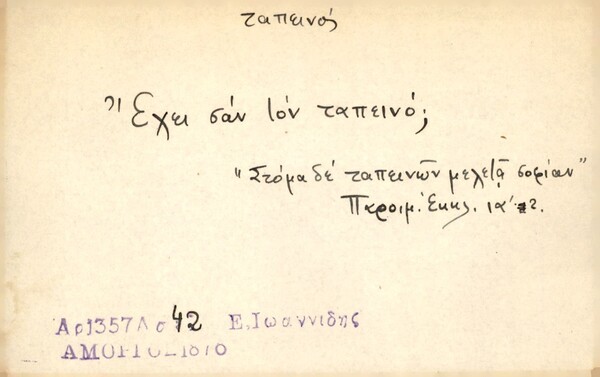 ταπεινός
Ἔχει σάν τόν ταπεινό;
"Στόμα δέ ταπεινῶν μελετᾷ σοφίαν"
Παροιμ. Ἐκκλ. ια' 2.
Αρ1357Λσ 42 Ε. Ιωαννίδης
ΑΜΟΡΓΟΣ 1876